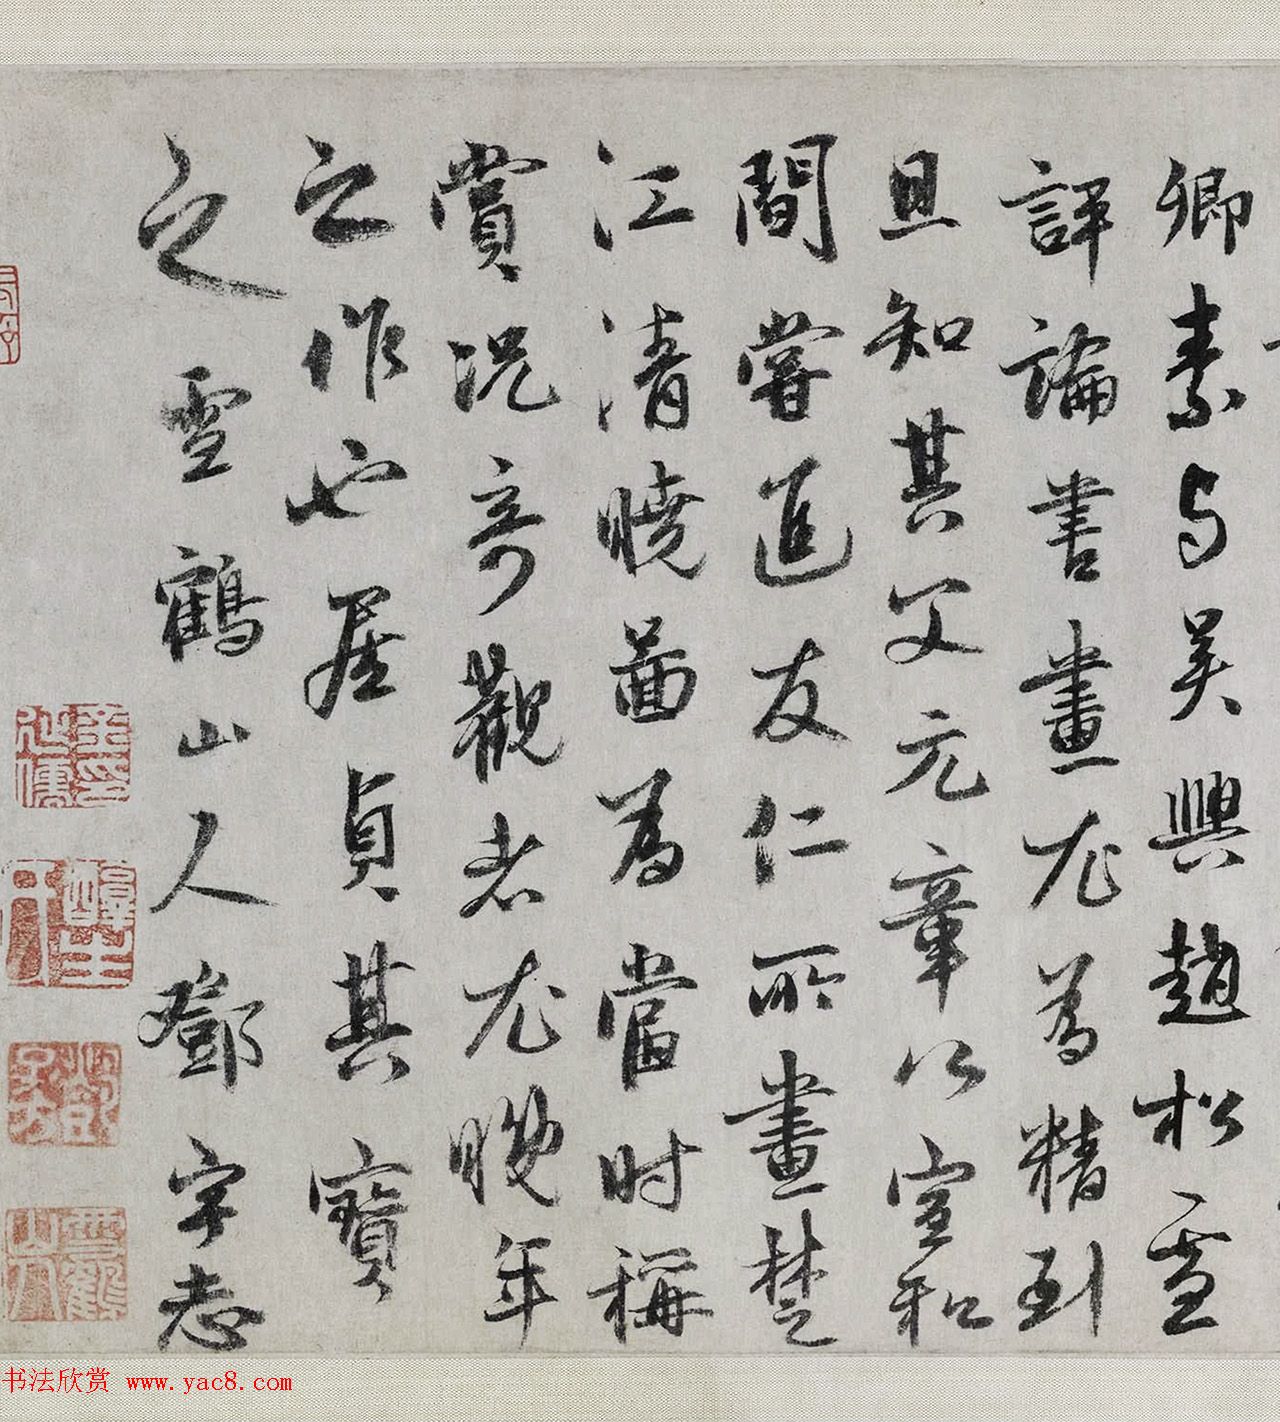 卿素与吴興趙松雪
評論書畫尤為精到
且知其父元章以宣和
間嘗進友仁所畫楚
江清曉畾為當时稱
賞况奇觀者尤晚年
之作也居貞其寳
之雪鶴山人鄧宇志
書法欣赏 www.yac8.com